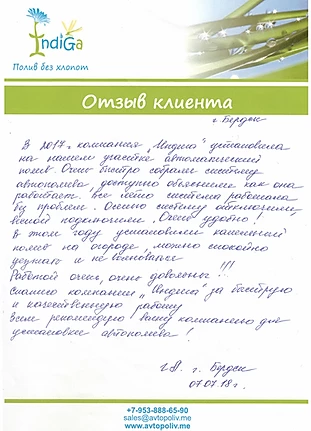 IndiGa
Полив без хлопот
Отзыв клиента
г. Бердск
В 2017г. компания „Индига" установила
на нашем участке автоматический
полив. Очень быстро собрали систему
автополива, доступно объяснили как она
работает. Все лето система работала
без проблем. Осенью систему отключили,
весной подключили. Очень удобно!
В этом году установили капельный
полив на огороде, можно спокойно
уезжать и не волноваться
Работой очень, очень довольны!!!
Спасибо компании „Индига" за быструю
и качественную работу
Всем рекомендую вашу компанию для
установки автополива!
г. Бердск
07.07.18г.
+7-953-888-65-90
sales@avtopoliv.me
www.avtopoliv.me